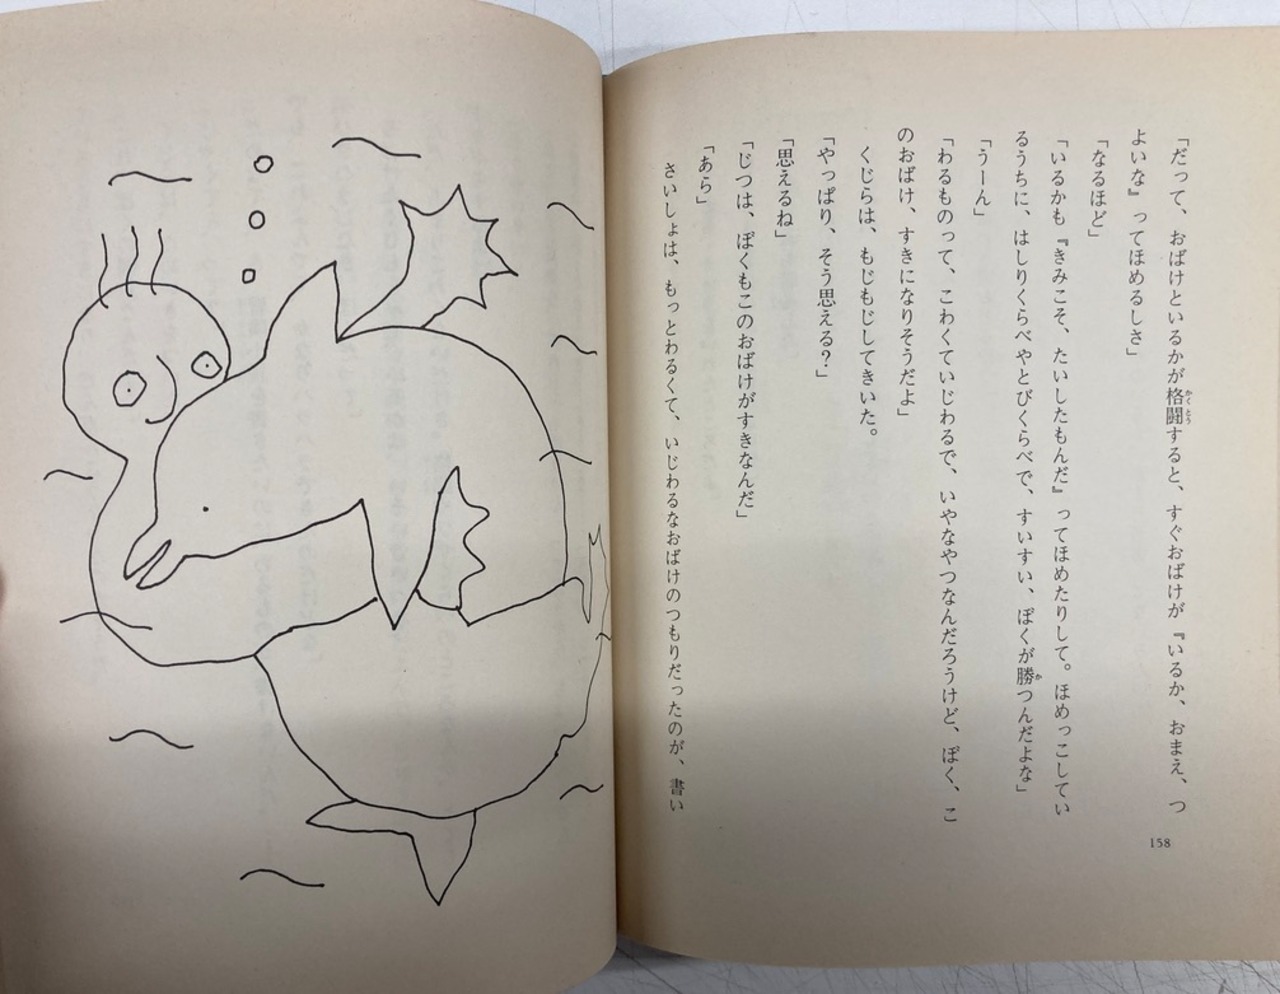 「だって、おばけといるかが格闘すると、すぐおばけが『いるか、おまえ、つ
よいな』ってほめるしさ」
「なるほど」
「いるかも『きみこそ、たいしたもんだ』ってほめたりして。ほめっこしてい
るうちに、はしりくらべやとびくらべで、すいすい、ぼくが勝つんだよな」
「うーん」
「わるものって、こわくていじわるで、いやなやつなんだろうけど、ぼく、こ
のおばけ、すきになりそうだよ」
くじらは、もじもじしてきいた。
「やっぱり、そう思える？」
「思えるね」
「じつは、ぼくもこのおばけがすきなんだ」
「あら」
さいしょは、もっとわるくて、いじわるなおばけのつもりだったのが、書い
158